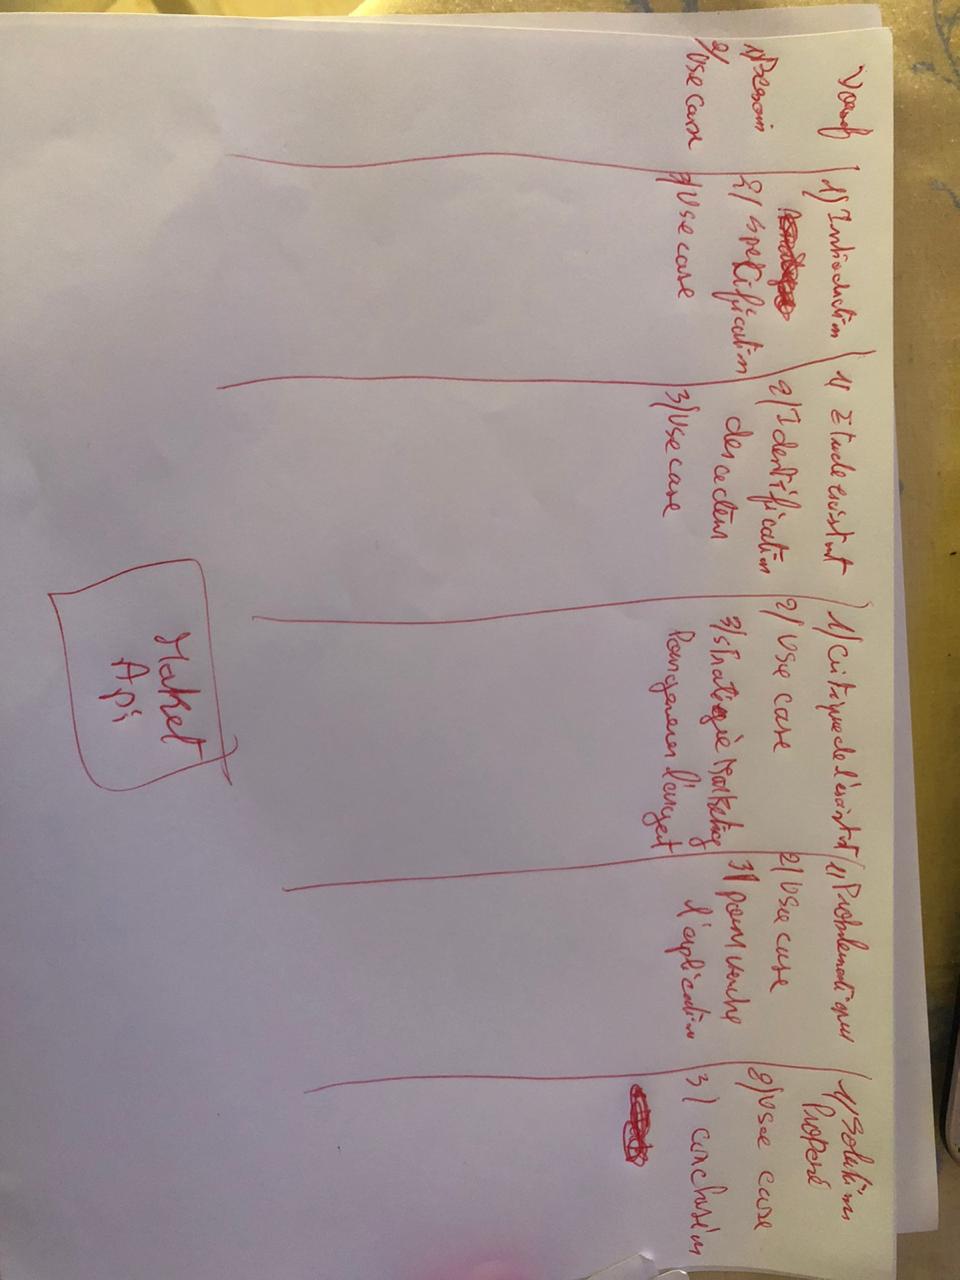 1) Besoin
2) Use case
1) Introduction
2) Spécification
4) Use case
1) Etude existant
2) Identification
des acteurs
3) Use case
1) Critique de l'existant
2) Use case
3) Stratégie Marketing
l'argent
1) Problematique
2) Use case
3) pour vendre
l'aplication
1) Solution
Proposé
2) Use case
3) conclusion
Market
Api